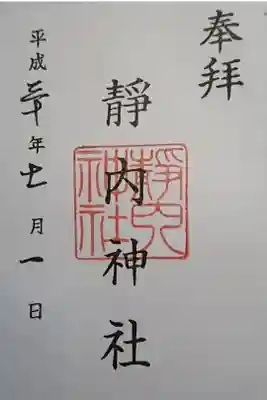 奉拝
靜内神社
靜内
神社
平成三十年十一月一日